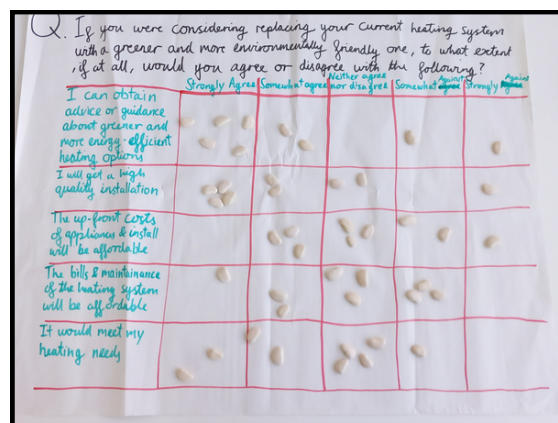 Q. If you were considering replacing your current heating system
with a greener and more environmentally friendly one, to what extent
, if at all, would you agree or disagree with the following?
Strongly Agree
Somewhat agree
Neither agree
nor disagree
Somewhat Against agree
Strongly Against agree
I can obtain
advice or guidance
about greener and
more energy-efficient
heating options
I will get a high
quality installation
The up-front costs
of appliances & install
will be affordable
The bills & maintainance
of the heating system
will be affordable
It would meet my
heating needs